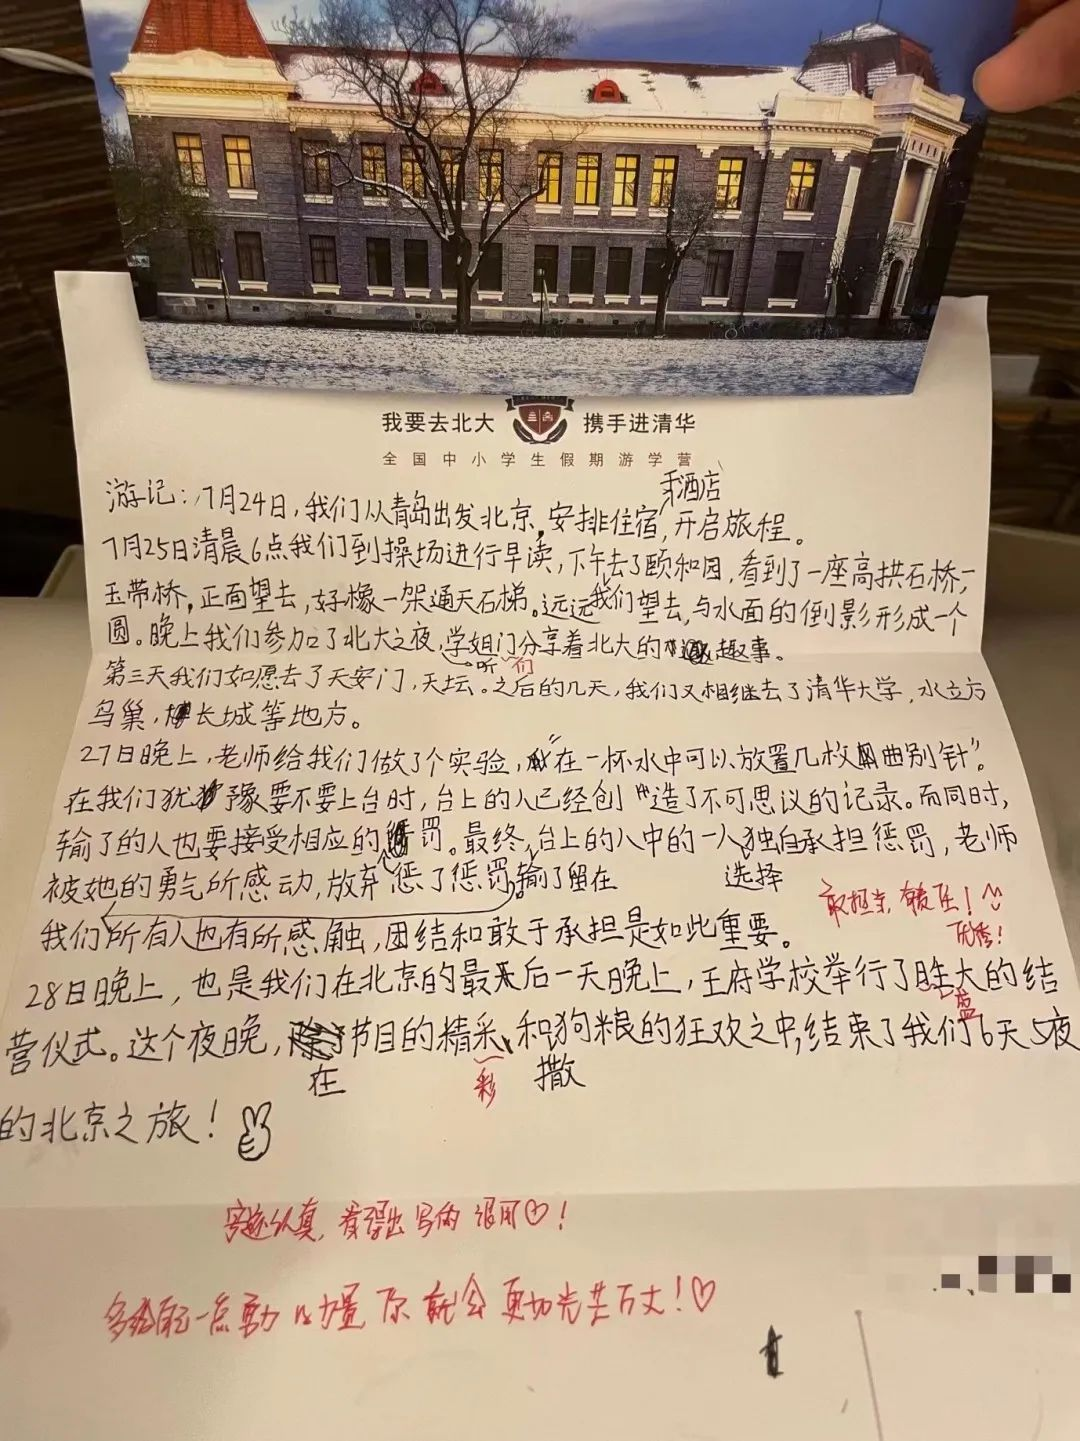 我要去北大 携手进清华
全国中小学生假期游学营
于酒店
游记：7月24日，我们从青岛出发北京，安排住宿，开启旅程。
7月25日清晨6点我们到操场进行早读，下午去了颐和园，看到了一座高拱石桥，—
玉带桥，正面望去，好橡一架通天石梯。远远我们望去，与水面的倒影形成一个
圆。晚上我们参加了北大之夜，学姐门分享着北大的趣事。
听 们
第三天我们如愿去了天安门，天坛。之后的几天，我们又相继去了清华大学，水立方
鸟巢，长城等地方。
27日晚上，老师给我们做了个实验，“在一杯水中可以放置几枚曲别针”。
在我们犹豫要不要上台时，台上的人已经创造了不可思议的记录。而同时，
输了的人也要接受相应的惩罚。最终，台上的人中的一人独自承担惩罚，老师
被她的勇气所感动，放弃惩了惩罚，输了留在 选择
敢担当，有责任！
优秀！
我们所有人也有所感触，团结和敢于承担是如此重要。
28日晚上，也是我们在北京的最后一天晚上，王府学校举行了胜大的结
盛
营仪式。这个夜晚，节目的精采、和狗粮的狂欢之中，结束了我们6天5夜
在 彩 撒
的北京之旅！
字迹认真，看得出写的很用♡！
多给自己一点勇 力量 你就会更加光芒万丈！♡